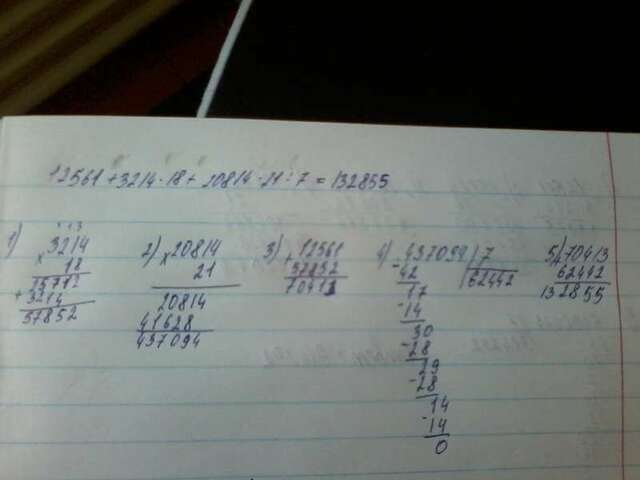 12561 + 3214 · 18 + 20814 · 21 : 7 = 132855
1) × 3214
18
25712
+ 3214
57852
2) × 20814
21
20814
41628
437094
3) + 12561
57852
70413
4) - 437094 | 7
42 | 62442
17
- 14
30
- 28
29
- 28
14
- 14
0
5) + 70413
62442
132855